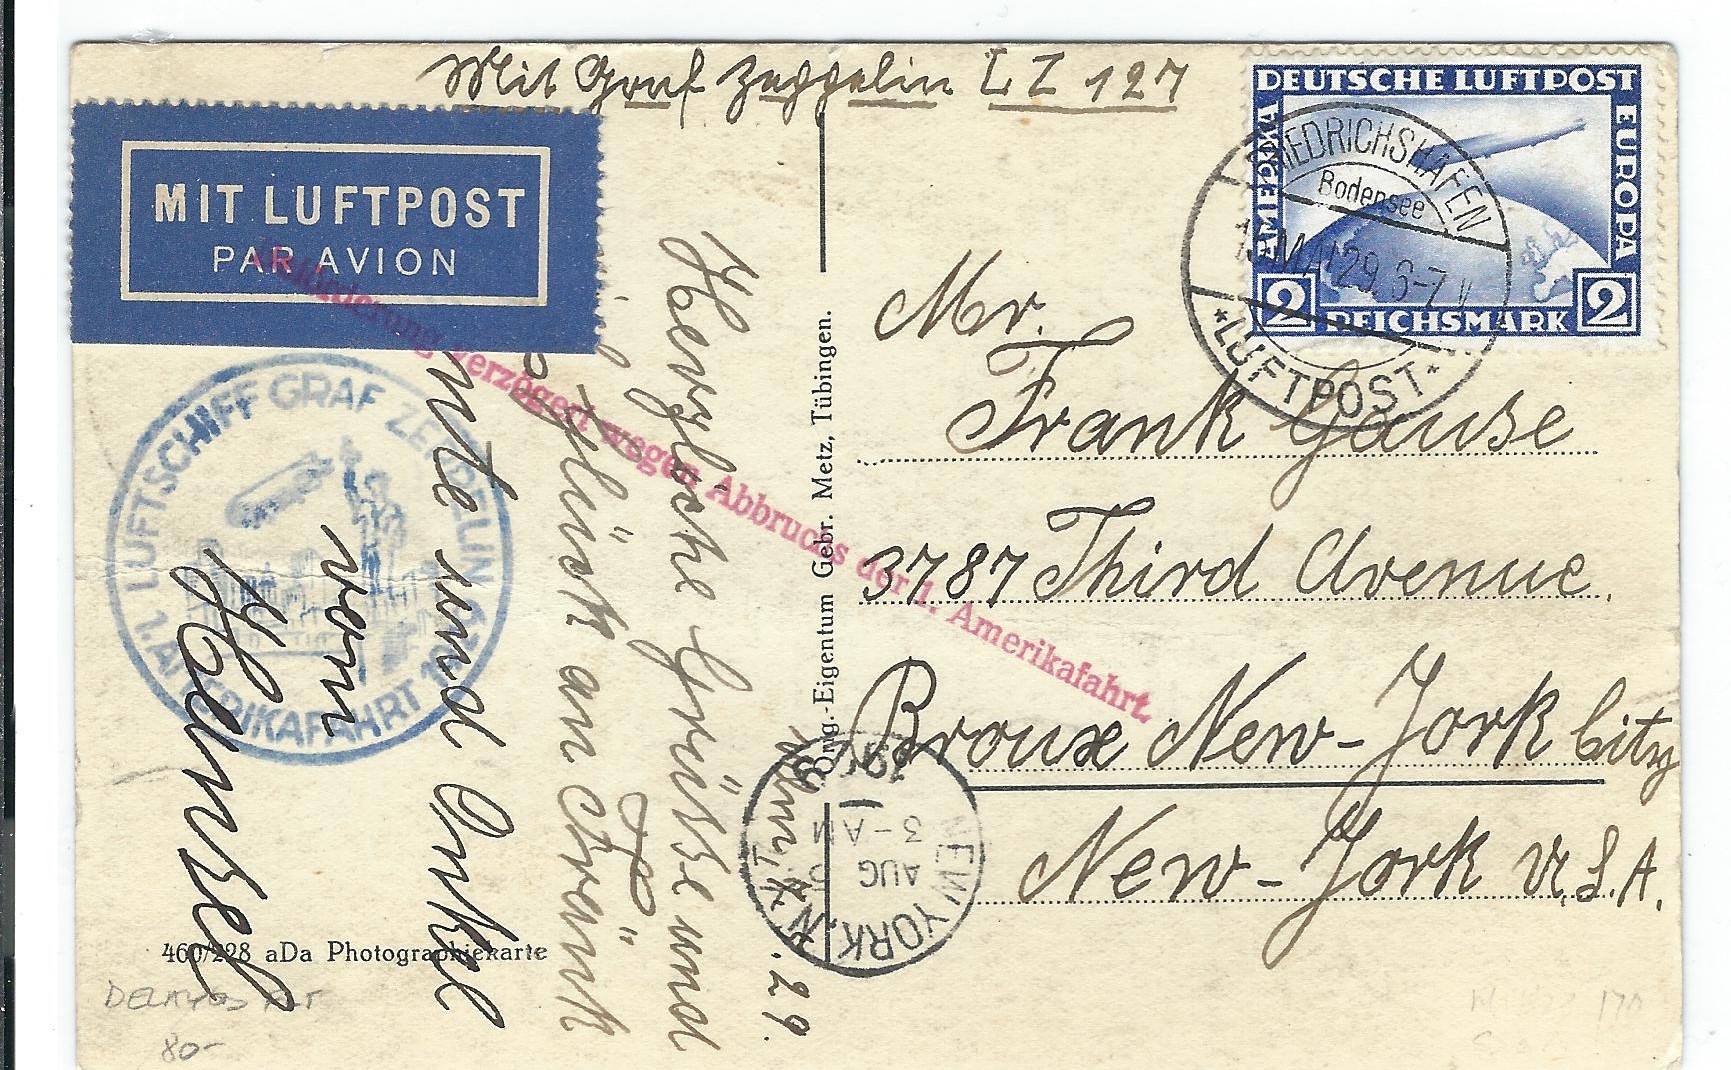 Mit Graf Zeppelin LZ 127
MIT LUFTPOST
PAR AVION
DEUTSCHE LUFTPOST
AMERIKA
EUROPA
2 REICHSMARK 2
FRIEDRICHSHAFEN
Bodensee
MAI 29. 6-7
*LUFTPOST*
Beförderung verzögert wegen Abbruchs der 1. Amerikafahrt.
LUFTSCHIFF GRAF ZEPPELIN
1. AMERIKAFAHRT
Mr.
Frank Gause
3787 Third Avenue.
Bronx New-York City
New-York U.S.A.
Orig.-Eigentum Gebr. Metz, Tübingen.
NEW YORK, N.Y.
AUG
3-AM
29.
Herzliche Grüße und
Glück an Frank
und Onkel
von
460/228 aDa Photographiekarte
80-
170